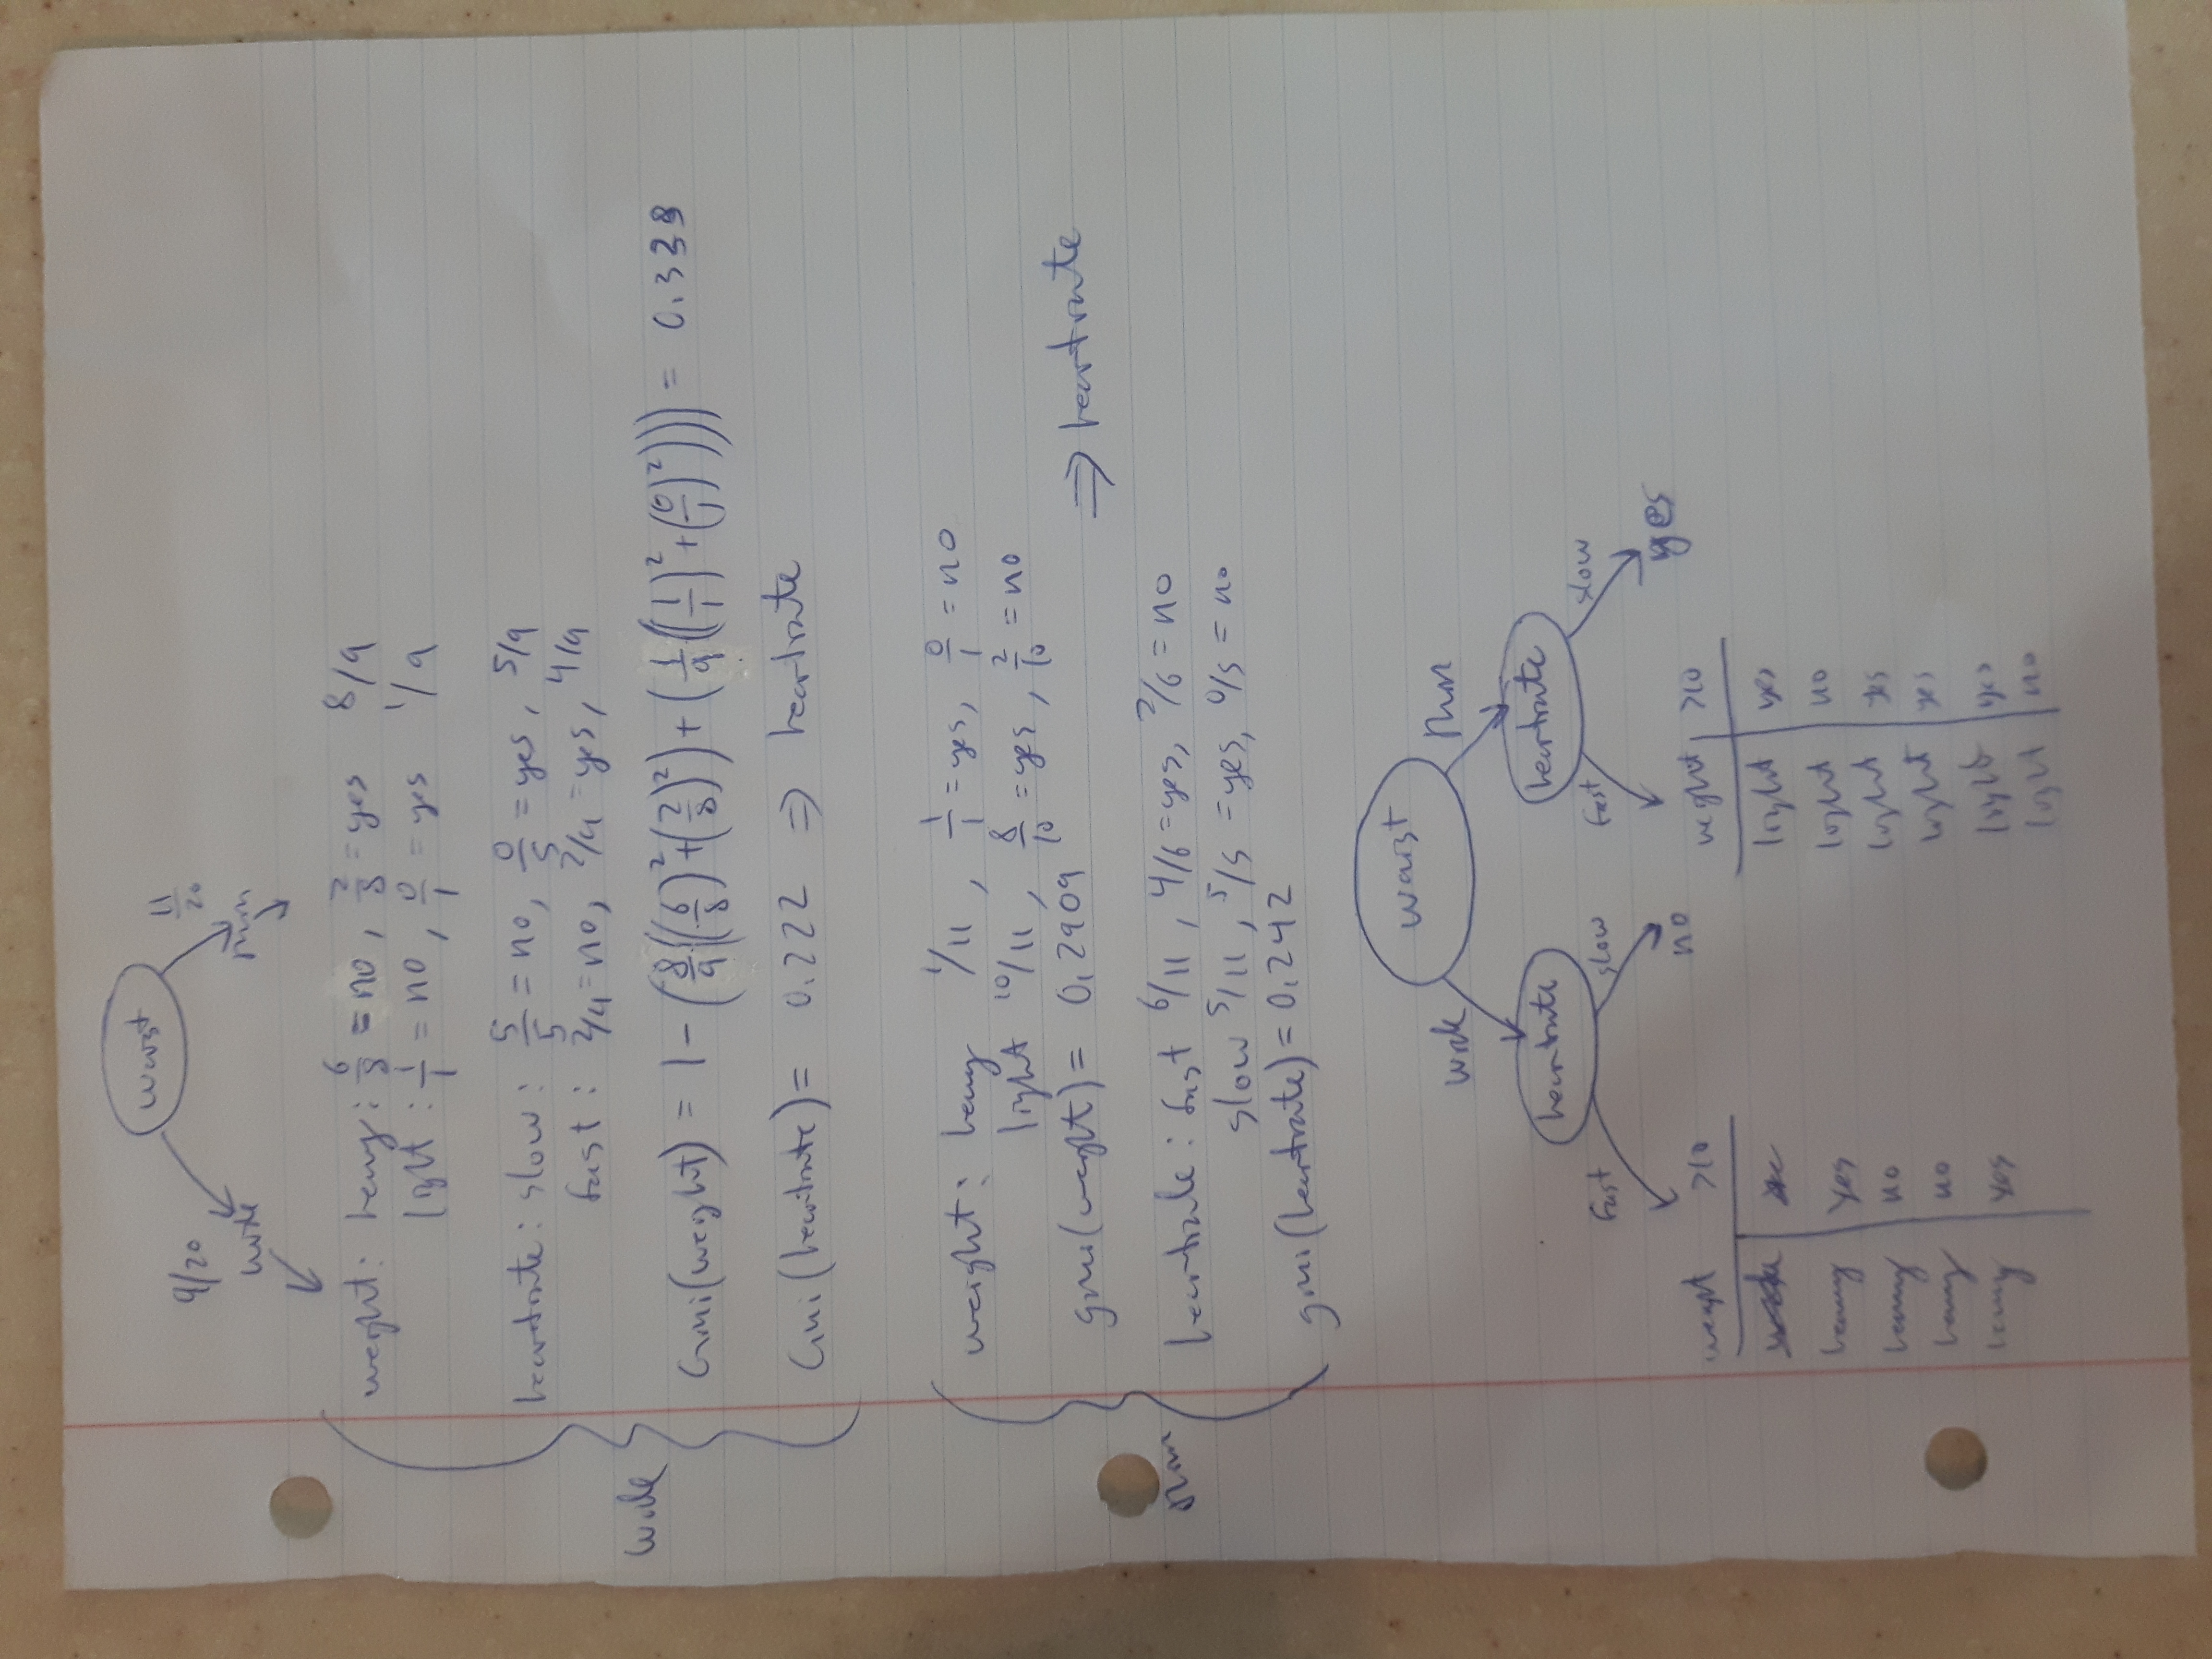 waist
9/20 11/20
wide thin
weight: heavy: 6/8 = no, 2/8 = yes 8/9
light: 1/1 = no, 0/1 = yes 1/9
heartrate: slow: 5/5 = no, 0/5 = yes, 5/9
fast: 2/4 = no, 2/4 = yes, 4/9
wide
Gini(weight) = 1 - (8/9((6/8)²+(2/8)²)) + (1/9((1/1)²+(0/1)²)))) = 0.338
Gini(heartrate) = 0.222 ⇒ heartrate
weight: heavy 1/11, 1/1 = yes, 0/1 = no
light 10/11, 8/10 = yes, 2/10 = no
gini(weight) = 0.2909
⇒ heartrate
thin
heartrate: fast 6/11, 4/6 = yes, 2/6 = no
slow 5/11, 5/5 = yes, 0/5 = no
gini(heartrate) = 0.242
waist
wide thin
heartrate heartrate
fast slow fast slow
no yes
weight >10 weight >10
light yes
heavy yes light no
heavy no light yes
heavy no light yes
heavy yes light yes
light no